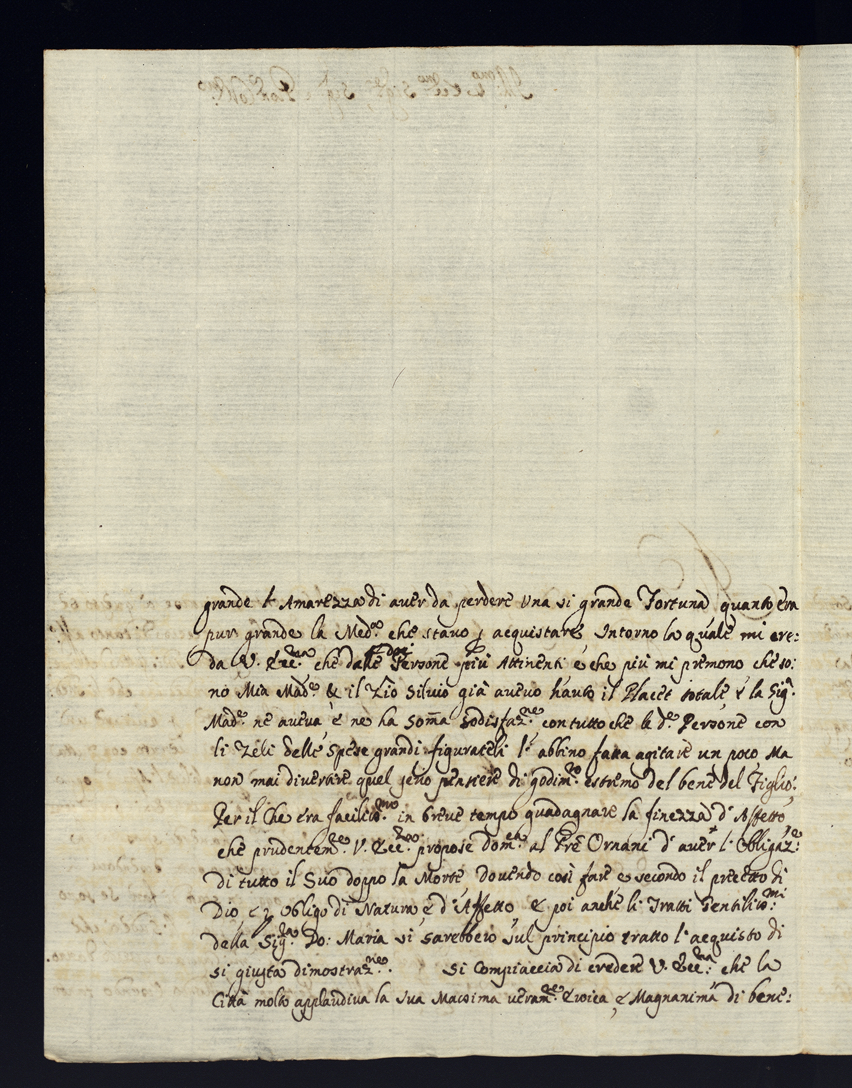 grande l'Amarezza di aver da perdere una si grande Fortuna quanto era
pur grande la Med.ª che stavo p acquistare Intorno la quale mi cre:
da V. Ecc.za che dalle Persone più Attinenti e che più mi premono che so:
no Mia Mad.e & il Zio Silvio già avevo hauto il Placet totale e la Sig.ª
Mad.e ne aveva e ne ha somma sodisfaz.ne con tutto che le d.e Persone con
li Zeli delle Spese grandi figurateli l'abbino fatta agitare un poco Ma
non mai divertire quel seno pensiere di godim.to estremo del bene del Figlio.
Per il che era facilis.mo in breve tempo guadagnare la finezza d'Affetto
che prudentem.te V. Ecc.za propose al Pre Ornani d'aver l'Obligaz.e
di tutto il Suo doppo la Morte dovendo così fare e secondo il precetto di
Dio e p obligo di Natura e d'Affetto e poi anche li Tratti Gentilis.mi
della Sig.ra Do: Maria si sarebbero sul principio tratto l'acquisto di
si giusta dimostraz.ne. Si Compiaccia di credere V. Ecc.za che la
Città molto applaudiva la sua Massima veram.te Eroica e Magnanima di bene: